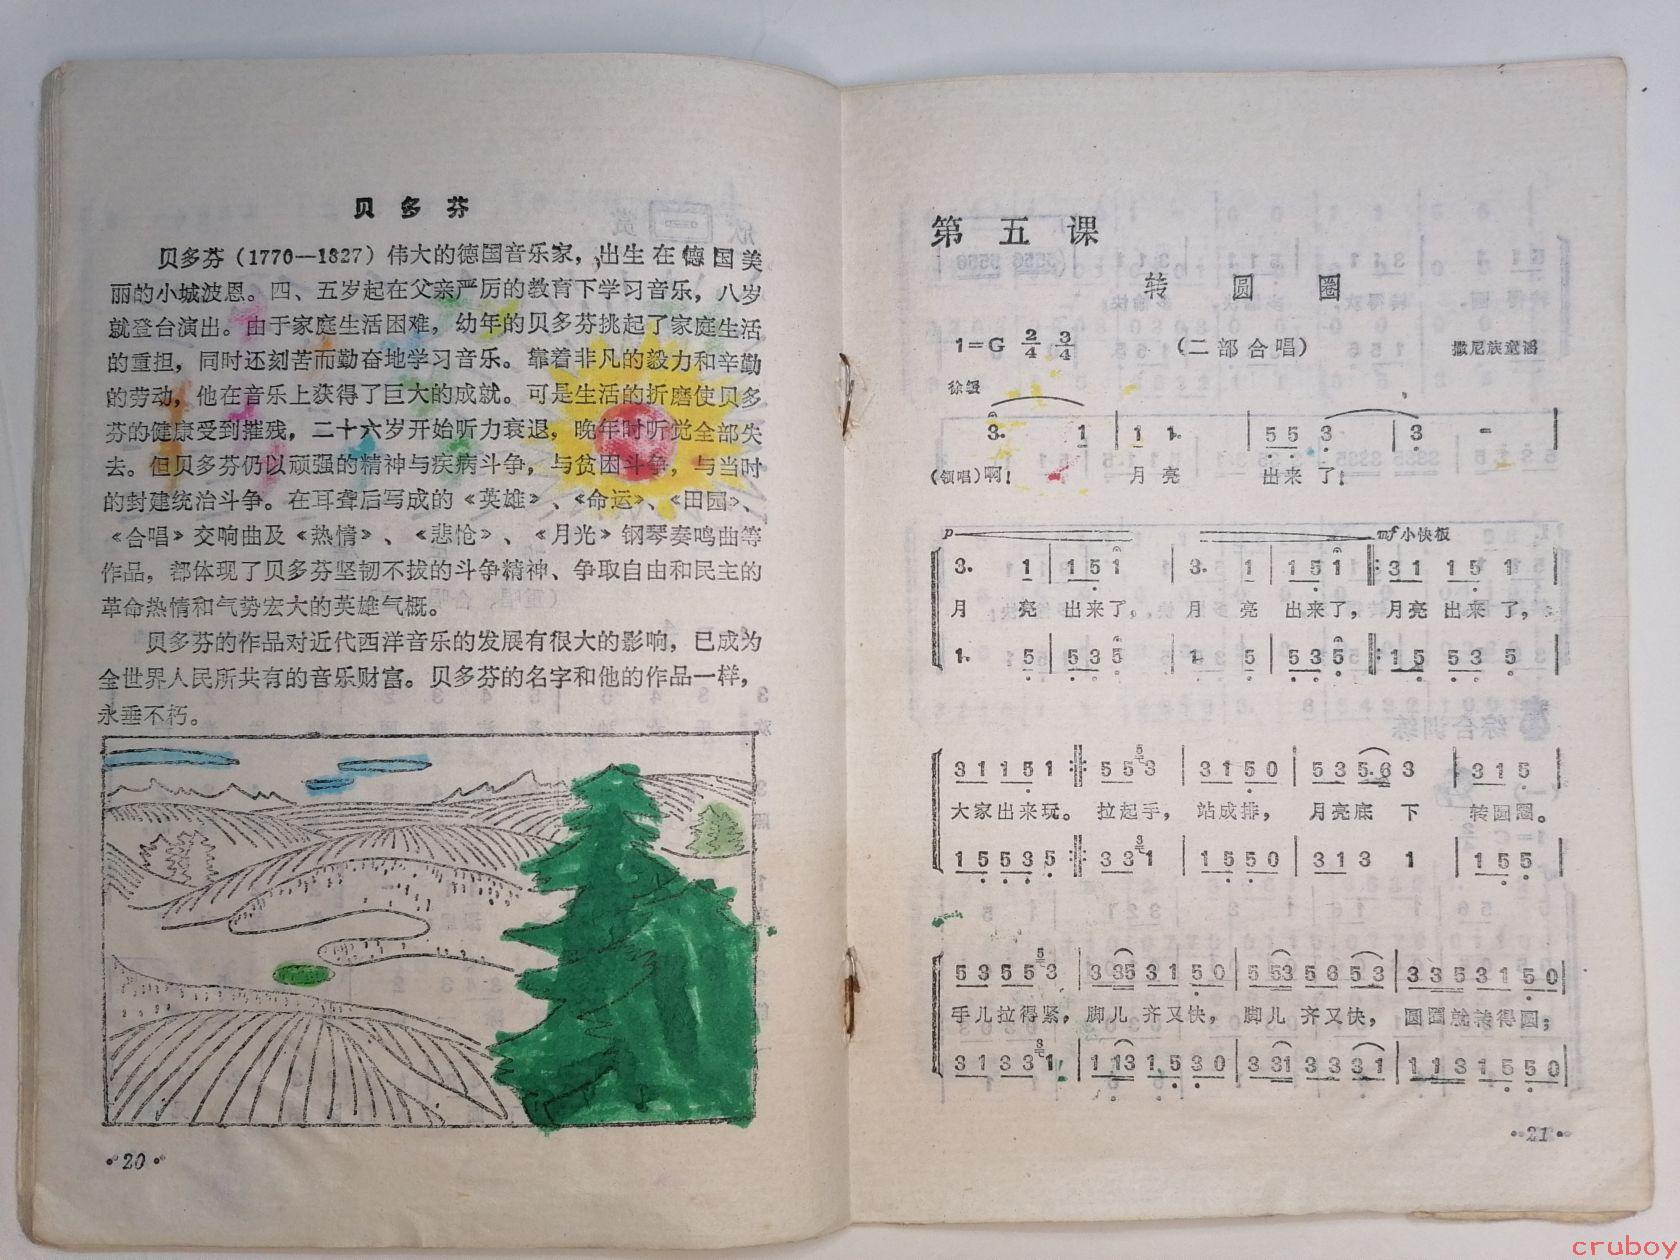 贝多芬
贝多芬（1770—1827）伟大的德国音乐家，出生在德国美
丽的小城波恩。四、五岁起在父亲严厉的教育下学习音乐，八岁
就登台演出。由于家庭生活困难，幼年的贝多芬挑起了家庭生活
的重担，同时还刻苦而勤奋地学习音乐。靠着非凡的毅力和辛勤
的劳动，他在音乐上获得了巨大的成就。可是生活的折磨使贝多
芬的健康受到摧残，二十六岁开始听力衰退，晚年时听觉全部失
去。但贝多芬仍以顽强的精神与疾病斗争，与贫困斗争，与当时
的封建统治斗争。在耳聋后写成的《英雄》、《命运》、《田园》、
《合唱》交响曲及《热情》、《悲怆》、《月光》钢琴奏鸣曲等
作品，都体现了贝多芬坚韧不拔的斗争精神、争取自由和民主的
革命热情和气势宏大的英雄气概。
贝多芬的作品对近代西洋音乐的发展有很大的影响，已成为
全世界人民所共有的音乐财富。贝多芬的名字和他的作品一样，
永垂不朽。
·20·
第五课
转圆圈
1=G 2/4 3/4 （二部合唱） 撒尼族童谣
徐缓
3. 1 | 1 1. | 5 5 3 | 3 - |
（领唱）啊！ 月亮 出来了！
p mf 小快板
3. 1 | 1 5 1 | 3. 1 | 1 5 1 |: 3 1 1 5 1 |
月亮出来了。月亮出来了，月亮出来了，
1. 5 | 5 3 5 | 1. 5 | 5 3 5 |: 1 5 5 3 5 |
3 1 1 5 1 :| 5 5 3 | 3 1 5 0 | 5 3 5.6 3 | 3 1 5 |
大家出来玩。拉起手，站成排，月亮底下 转圆圈。
1 5 5 3 5 :| 3 3 1 | 1 5 5 0 | 3 1 3 1 | 1 5 5 |
5 3 5 5 3 | 3 35 3 1 5 0 | 5 53 5 3 5 3 | 3 3 5 3 1 5 0 |
手儿拉得紧，脚儿齐又快，脚儿齐又快，圆圈就转得圆；
3 1 3 3 1 | 1 13 1 5 3 0 | 3 31 3 3 3 1 | 1 1 3 1 5 5 0 |
·21·
cruboy